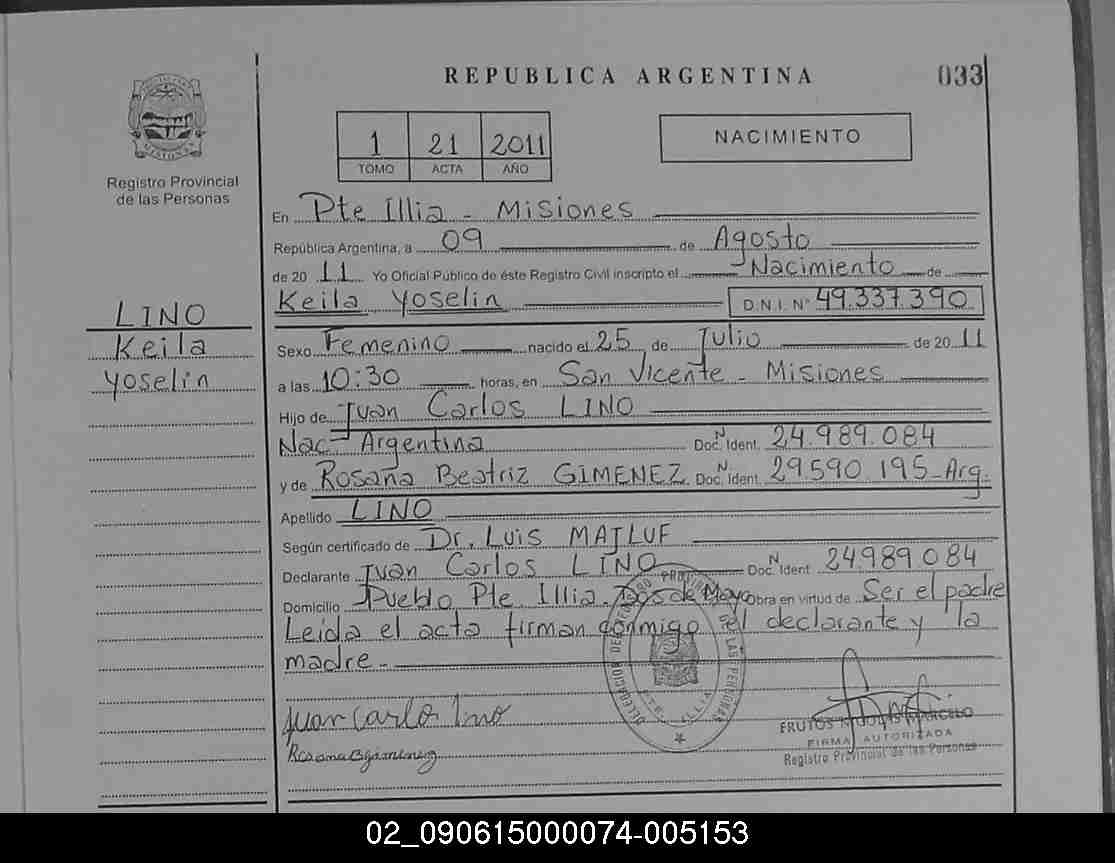 REPUBLICA ARGENTINA
033
MISIONES
Registro Provincial
de las Personas
1 21 2011
TOMO ACTA AÑO
NACIMIENTO
En Pte Illia - Misiones
República Argentina, a 09 de Agosto
de 20 11 Yo Oficial Público de éste Registro Civil inscripto el Nacimiento de
Keila Yoselin D.N.I. Nº 49.337.390
LINO
Keila
Yoselin
Sexo Femenino nacido el 25 de Julio de 20 11
a las 10:30 horas, en San Vicente - Misiones
Hijo de Juan Carlos LINO
Nac- Argentina Doc. Ident. N 24.989.084
y de Rosana Beatriz GIMENEZ Doc. Ident. N 29.590.195-Arg.
Apellido LINO
Según certificado de Dr. Luis MAJLUF
Declarante Juan Carlos LINO Doc. Ident. N 24.989.084
Domicilio Pueblo Pte. Illia. Dos de Mayo Obra en virtud de Ser el padre
Leida el acta firman conmigo el declarante y la
madre -
Juan Carlos Lino
DELEGACION DEL REGISTRO PROVINCIAL DE LAS PERSONAS
PTE. ILLIA
FRUTOS NICOLAS MARCELO
FIRMA AUTORIZADA
Registro Provincial de las Personas
02_090615000074-005153